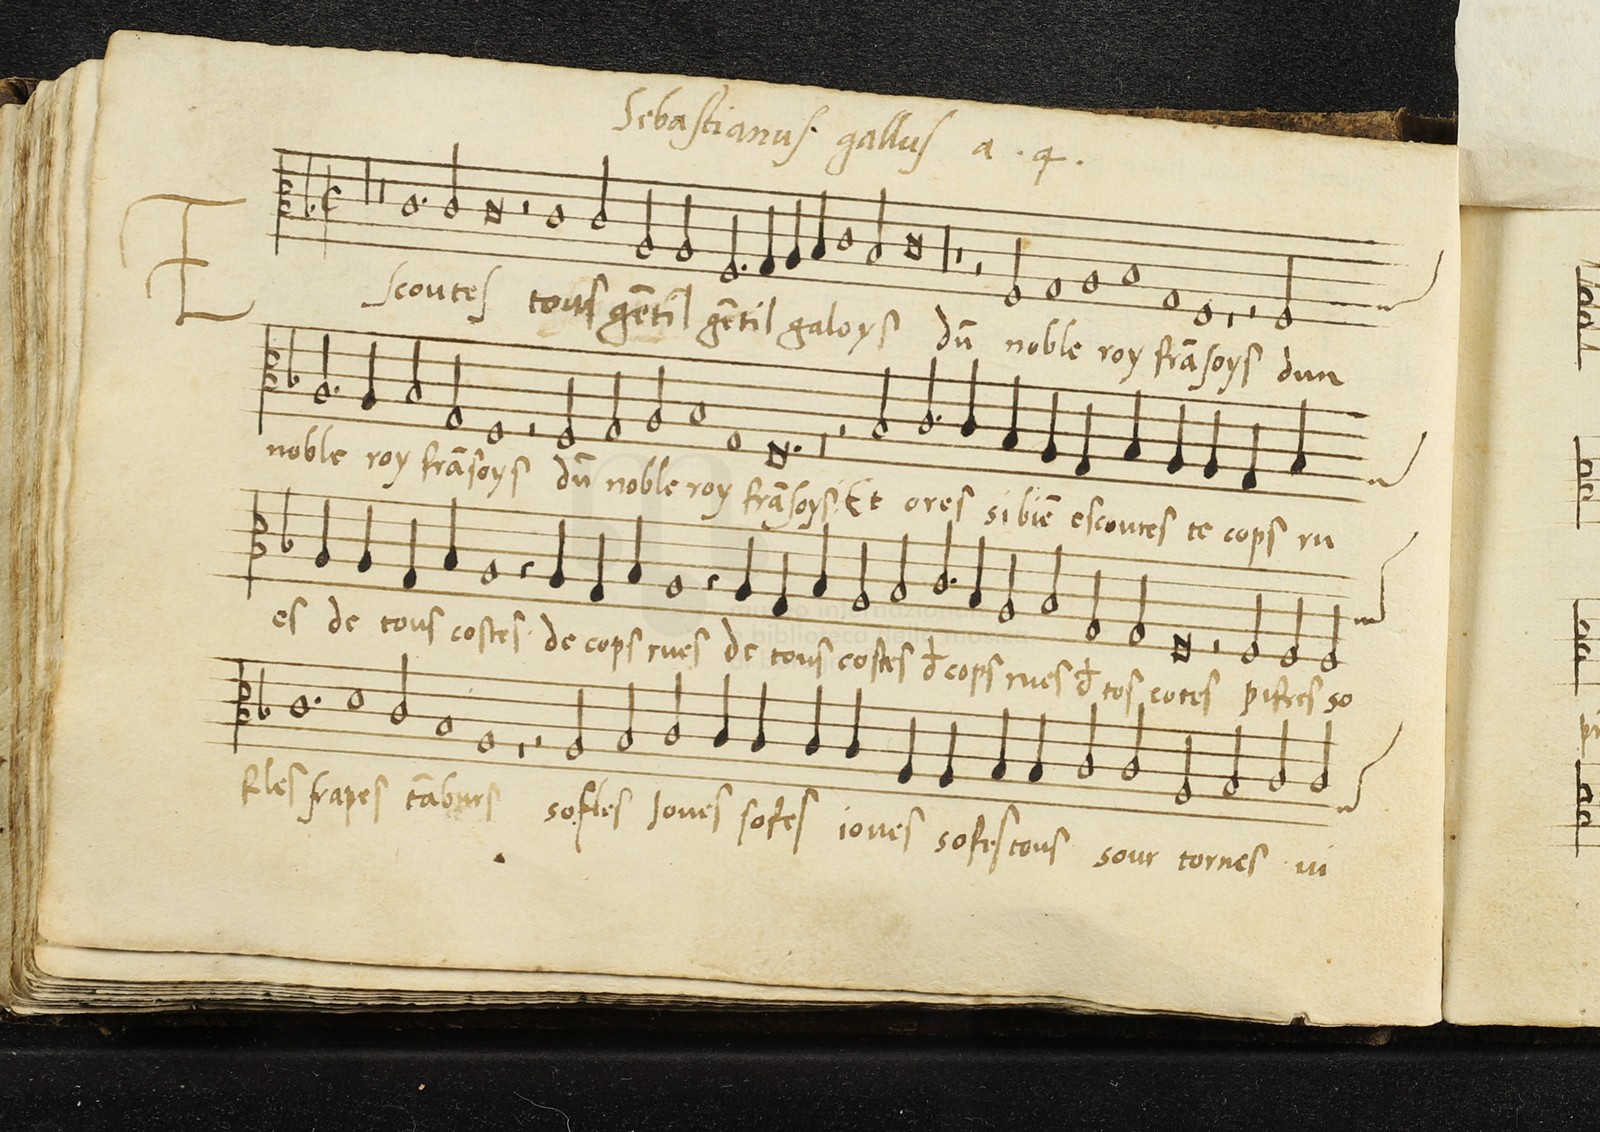 Sebastianus gallus a . 4 .
E
scoutes tous gētil gētil galoys dū noble roy frāsoys dun
noble roy frāsoys dū noble roy frāsoys Et ores si biē escoutes te cops ru
es de tous costes de cops rues de tous costes d cops rues d tos cotes pifres so
fles frapes tāburs sofles Joues sofes ioues sofes tous sour tornes vi
museo internazionale
biblioteca della musica